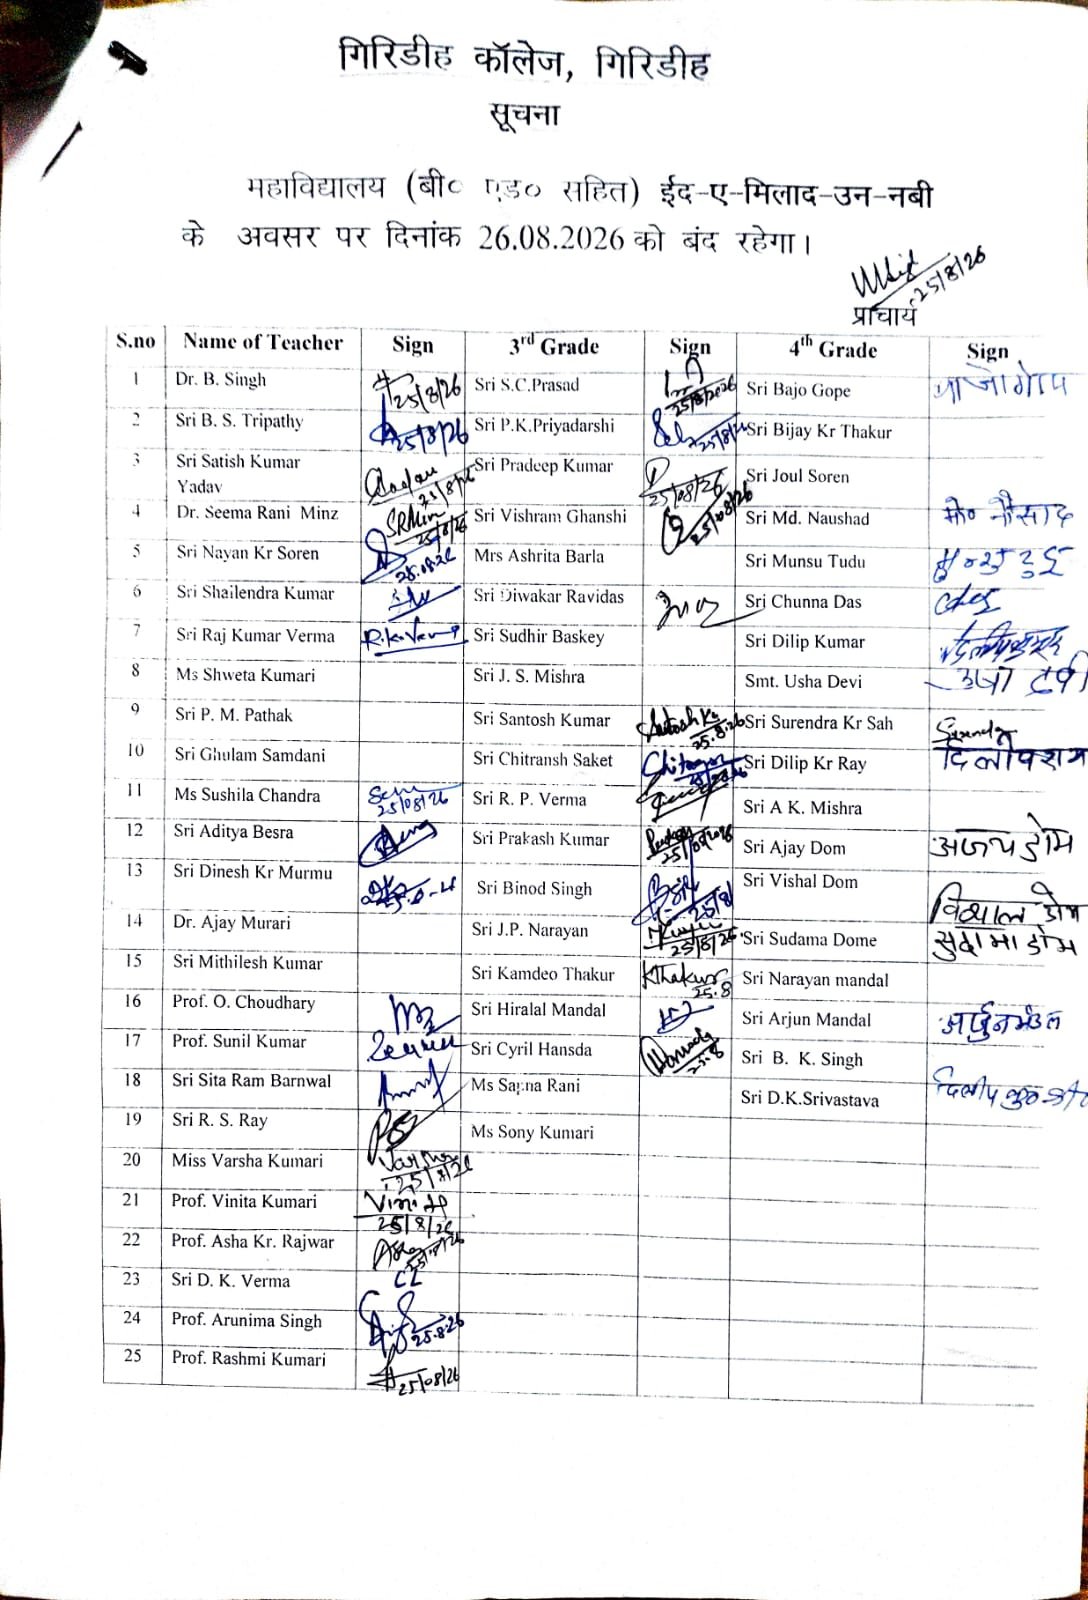 गिरिडीह कॉलेज, गिरिडीह
सूचना
महाविद्यालय (बी० एड० सहित) ईद-ए-मिलाद-उन-नबी
के अवसर पर दिनांक 26.08.2026 को बंद रहेगा।
25/8/26
प्राचार्य
S.no Name of Teacher Sign 3rd Grade Sign 4th Grade Sign
1 Dr. B. Singh 25/8/26 Sri S.C.Prasad 25/8/2026 Sri Bajo Gope
2 Sri B. S. Tripathy 25/8/26 Sri P.K.Priyadarshi Sri Bijay Kr Thakur
3 Sri Satish Kumar Yadav 25/8/26 Sri Pradeep Kumar 25/08/26 Sri Joul Soren
4 Dr. Seema Rani Minz SRMinz 25/8/26 Sri Vishram Ghanshi 25/08/26 Sri Md. Naushad मो० नौसाद
5 Sri Nayan Kr Soren 25.08.26 Mrs Ashrita Barla Sri Munsu Tudu
6 Sri Shailendra Kumar Sri Diwakar Ravidas Sri Chunna Das
7 Sri Raj Kumar Verma R.K.Verma Sri Sudhir Baskey Sri Dilip Kumar
8 Ms Shweta Kumari Sri J. S. Mishra Smt. Usha Devi
9 Sri P. M. Pathak Sri Santosh Kumar Santosh Kr 25.8.26 Sri Surendra Kr Sah
10 Sri Ghulam Samdani Sri Chitransh Saket Sri Dilip Kr Ray
11 Ms Sushila Chandra 25/08/26 Sri R. P. Verma Sri A K. Mishra
12 Sri Aditya Besra Sri Prakash Kumar Sri Ajay Dom अजय डोम
13 Sri Dinesh Kr Murmu Sri Binod Singh 25/8/ Sri Vishal Dom विशाल डोम
14 Dr. Ajay Murari Sri J.P. Narayan 25/8/26 Sri Sudama Dome सुदामा डोम
15 Sri Mithilesh Kumar Sri Kamdeo Thakur KThakur 25.8 Sri Narayan mandal
16 Prof. O. Choudhary Sri Hiralal Mandal Sri Arjun Mandal अर्जुन मंडल
17 Prof. Sunil Kumar Sri Cyril Hansda 25.8 Sri B. K. Singh
18 Sri Sita Ram Barnwal Ms Sapna Rani Sri D.K.Srivastava
19 Sri R. S. Ray Ms Sony Kumari
20 Miss Varsha Kumari Varsha 25/8/26
21 Prof. Vinita Kumari 25/8/26
22 Prof. Asha Kr. Rajwar
23 Sri D. K. Verma CL
24 Prof. Arunima Singh 25.8.26
25 Prof. Rashmi Kumari 25/08/26